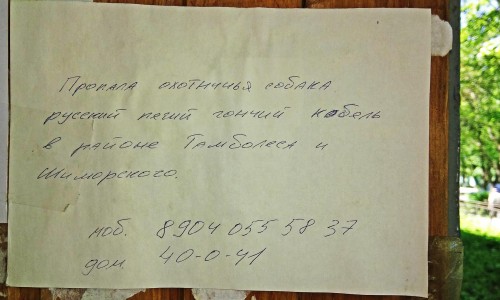 Пропала охотничья собака
русский пегий гончий кобель
в районе Тамболеса и
Шиморского.
моб. 8904 055 58 37
дом. 40-0-41